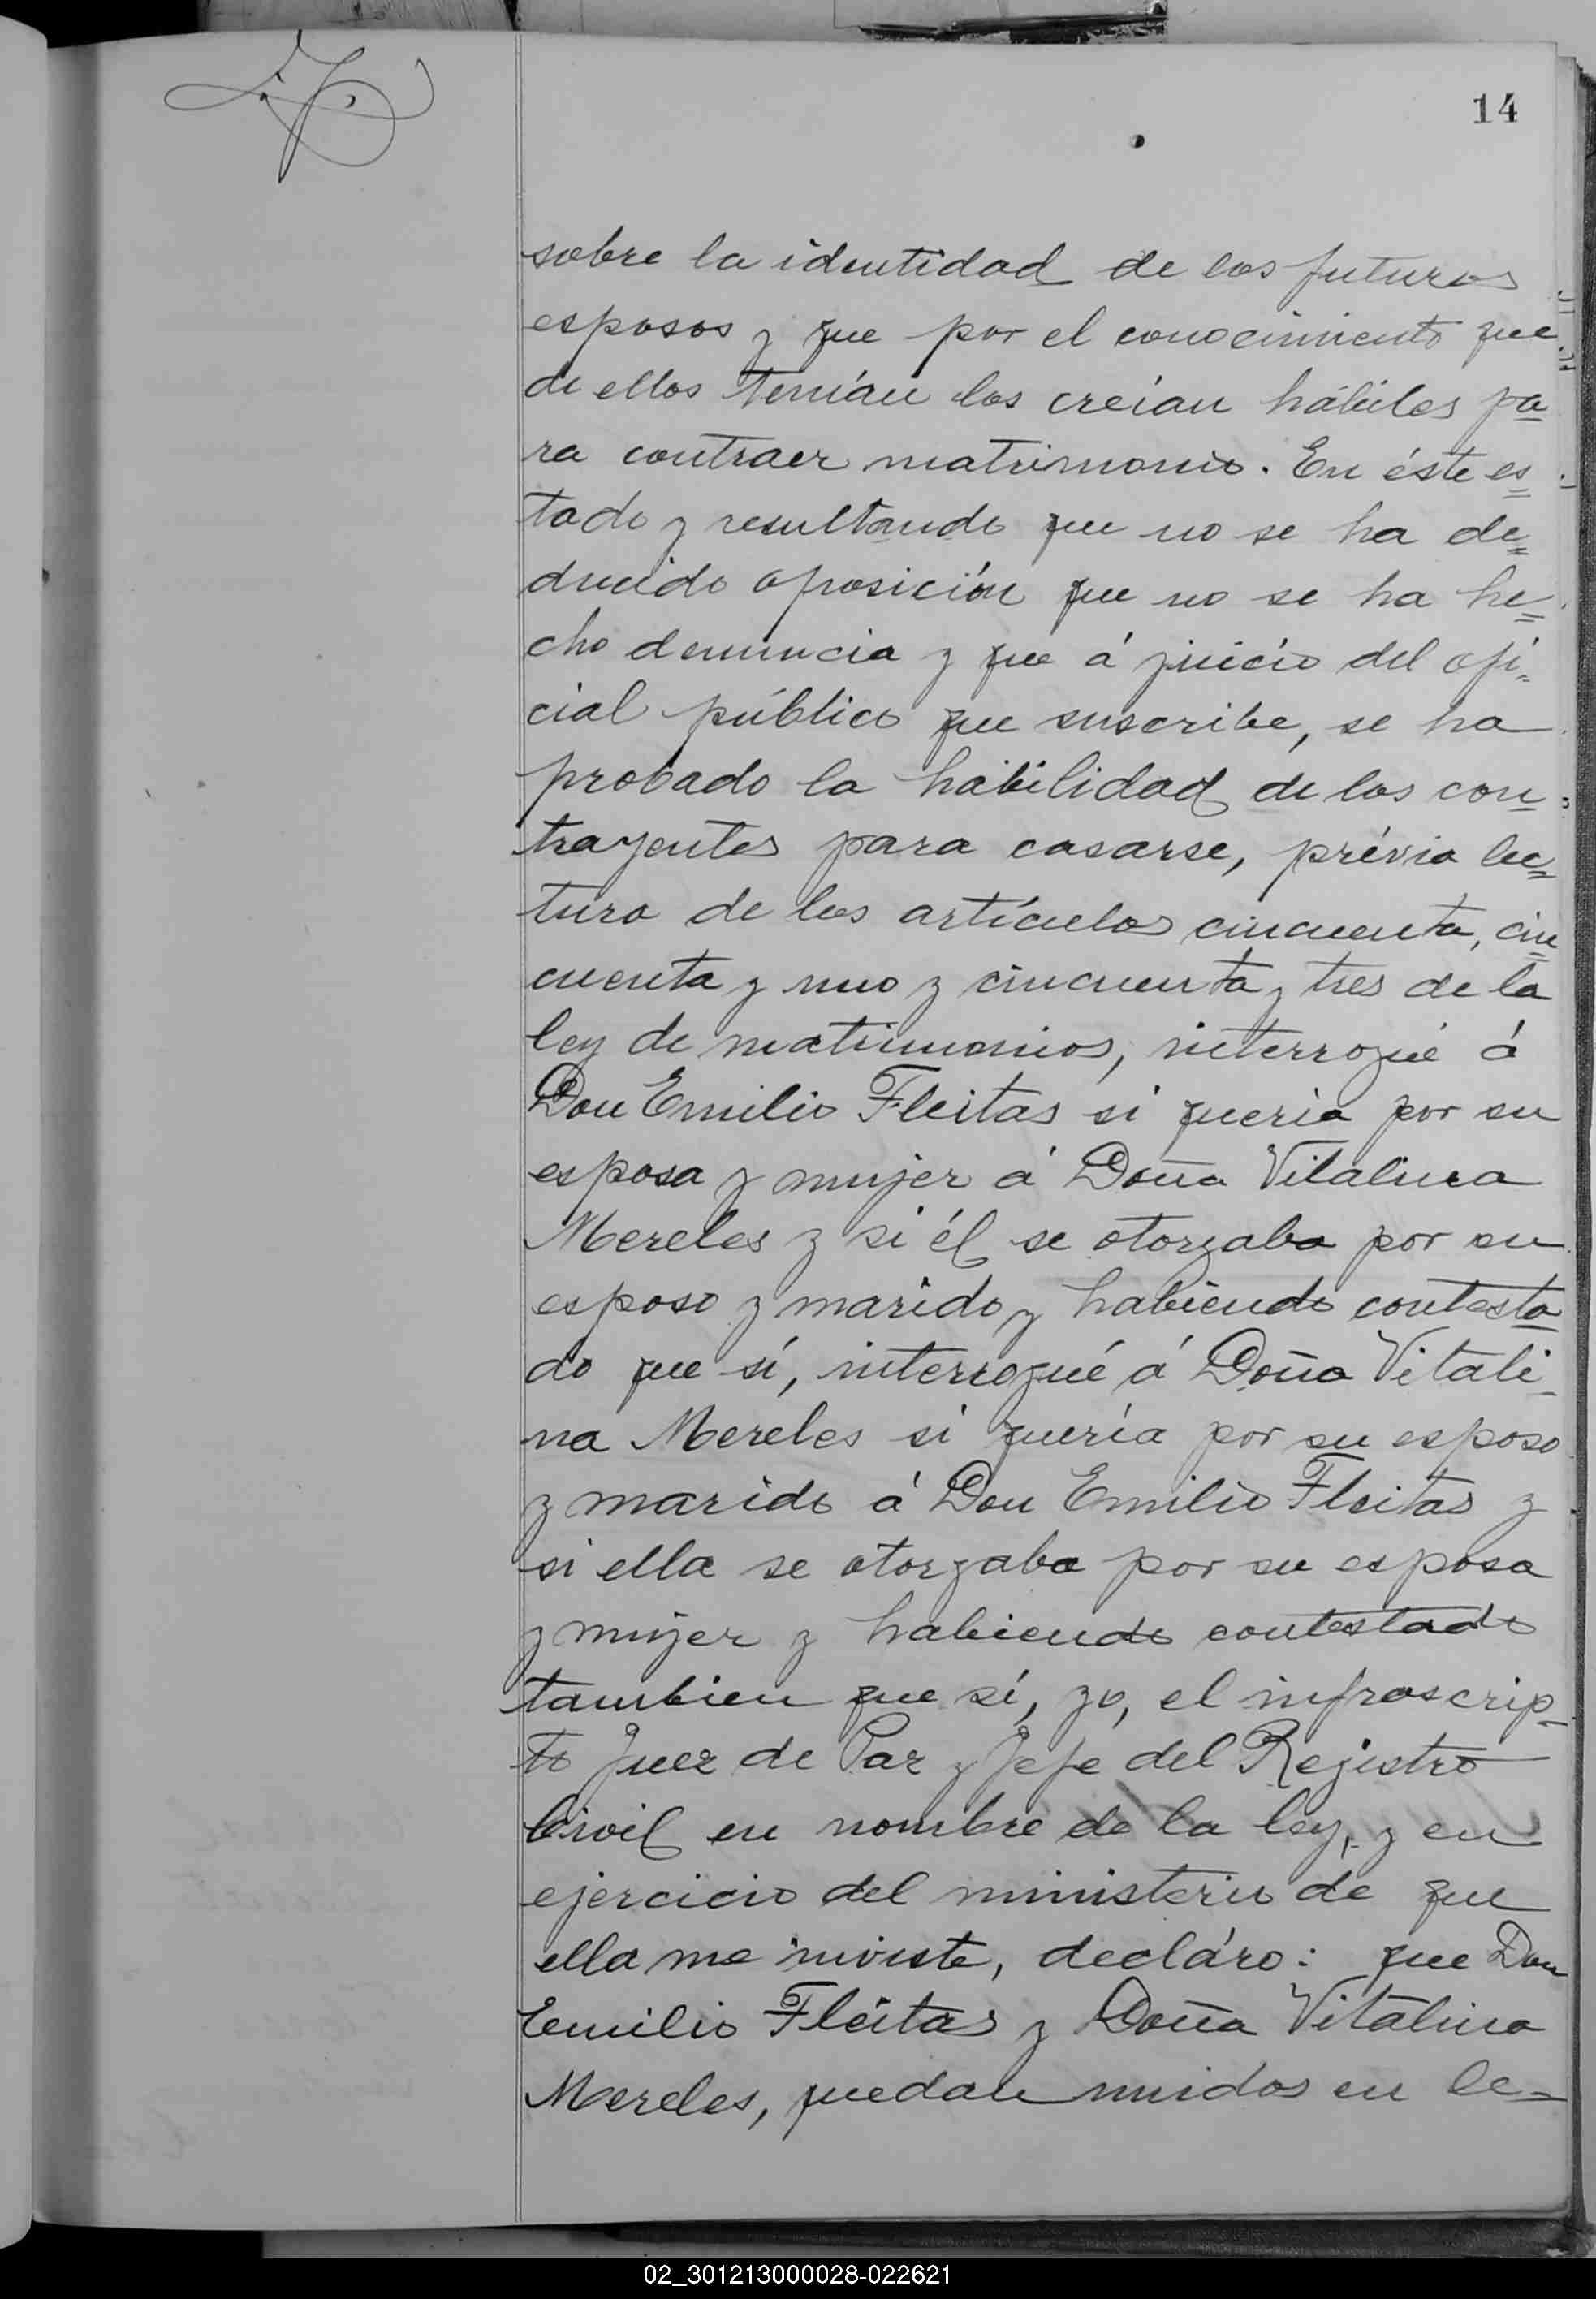 14
sobre la identidad de los futuros
esposos y que por el conocimiento que
de ellos tenían los creían hábiles pa
ra contraer matrimonio. En éste es=
tado y resultando que no se ha de=
ducido oposición que no se ha he=
cho denuncia y que á juicio del ofi=
cial público que suscribe, se ha
probado la habilidad de los con=
trayentes para casarse, prévia lec=
tura de los artículos cincuenta, cin
cuenta y uno y cincuenta y tres de la
ley de matrimonios, interrogué á
Don Emilio Fleitas si queria por su
esposa y mujer á Doña Vitalina
Mereles y si él se otorgaba por su
esposo y marido y habiendo contesta
do que sí, interrogué á Doña Vitali-
na Mereles si quería por su esposo
y marido á Don Emilio Fleitas y
si ella se otorgaba por su esposa
y mujer y habiendo contestado
tambien que sí, yo, el infrascrip-
to Juez de Paz y Jefe del Rejistro
Civil en nombre de la ley, y en
ejercicio del ministerio de que
ella me inviste, decláro: que Don
Emilio Fleitas y Doña Vitalina
Mereles, quedan unidos en le=
02_301213000028-022621